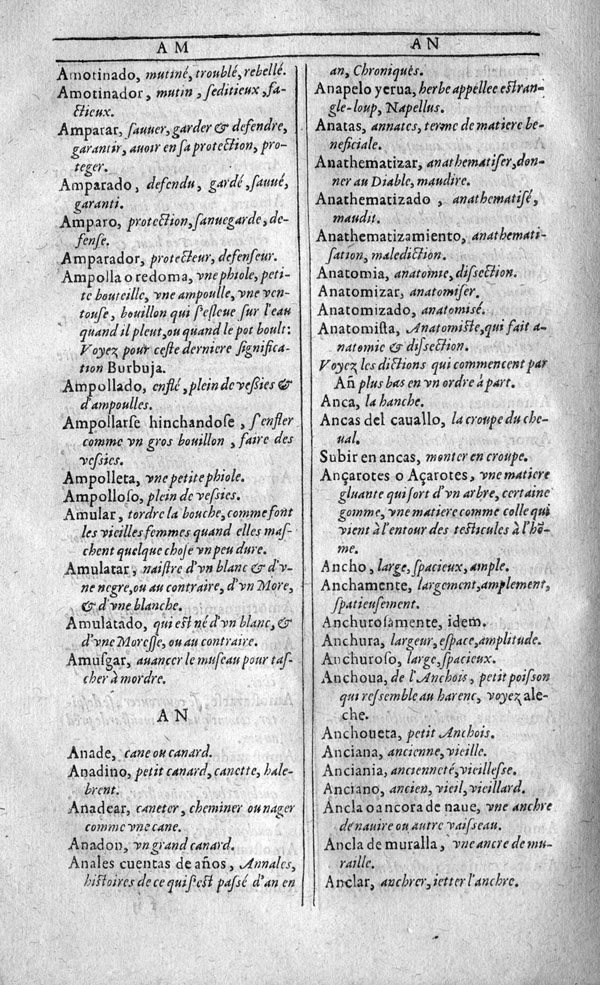 AM
Amotinado, mutiné, troublé, rebellé.
Amotinador, mutin, ſeditieux, fa-
ctieux.
Amparar, ſauuer, garder & defendre,
garantir, auoir en ſa protection, pro-
teger.
Amparado, defendu, gardé, ſauué,
garanti.
Amparo, protection, ſauuegarde, de-
fenſe.
Amparador, protecteur, defenſeur.
Ampolla o redoma, vne phiole, peti-
te bouteille, vne ampoulle, vne ven-
touſe, bouillon qui s'eſleue ſur l'eau
quand il pleut, ou quand le pot boult:
Voyez pour ceſte derniere ſignifica-
tion Burbuja.
Ampollado, enflé, plein de veſsies &
d'ampoulles.
Ampollarſe hinchandoſe, s'enfler
comme vn gros bouillon, faire des
veſsies.
Ampolleta, vne petite phiole.
Ampolloſo, plein de veſsies.
Amular, tordre la bouche, comme font
les vieilles femmes quand elles maſ-
chent quelque choſe vn peu dure.
Amulatar, naiſtre d'vn blanc & d'v-
ne negre, ou au contraire, d'vn More,
& d'vne blanche.
Amulatado, qui est né d'vn blanc, &
d'vne Moreſſe, ou au contraire.
Amuſgar, auancer le muſeau pour taſ-
cher à mordre.
AN
Anade, cane ou canard.
Anadino, petit canard, canette, hale-
brent.
Anadear, caneter, cheminer ou nager
comme vne cane.
Anadon, vn grand canard.
Anales cuentas de años, Annales,
hiſtoires de ce qui s'est paſſé d'an en
AN
an, Chroniques.
Anapelo yerua, herbe appellee eſtran-
gle-loup, Napellus.
Anatas, annates, terme de matiere be-
neficiale.
Anathematizar, anathematiſer, don-
ner au Diable, maudire.
Anathematizado, anathematiſé,
maudit.
Anathematizamiento, anathemati-
ſation, malediction.
Anatomia, anatomie, diſſection.
Anatomizar, anatomiſer.
Anatomizado, anatomisé.
Anatomiſta, Anatomiſte, qui fait a-
natomie & diſſection.
Voyez les dictions qui commencent par
Añ plus bas en vn ordre à part.
Anca, la hanche.
Ancas del cauallo, la croupe du che-
ual.
Subir en ancas, monter en croupe.
Ançarotes o Açarotes, vne matiere
gluante qui ſort d'vn arbre, certaine
gomme, vne matiere comme colle qui
vient à l'entour des teſticules à l'hõ-
me.
Ancho, large, ſpacieux, ample.
Anchamente, largement, amplement,
ſpatieuſement.
Anchuroſamente, idem.
Anchura, largeur, eſpace, amplitude.
Anchuroſo, large, ſpacieux.
Anchoua, de l'Anchois, petit poiſſon
qui reſſemble au harenc, voyez ale-
che.
Anchoueta, petit Anchois.
Anciana, ancienne, vieille.
Anciania, ancienneté, vieilleſſe.
Anciano, ancien, vieil, vieillard.
Ancla o ancora de naue, vne anchre
de nauire ou autre vaiſſeau.
Ancla de muralla, vne ancre de mu-
raille.
Anclar, anchrer, ietter l'anchre.